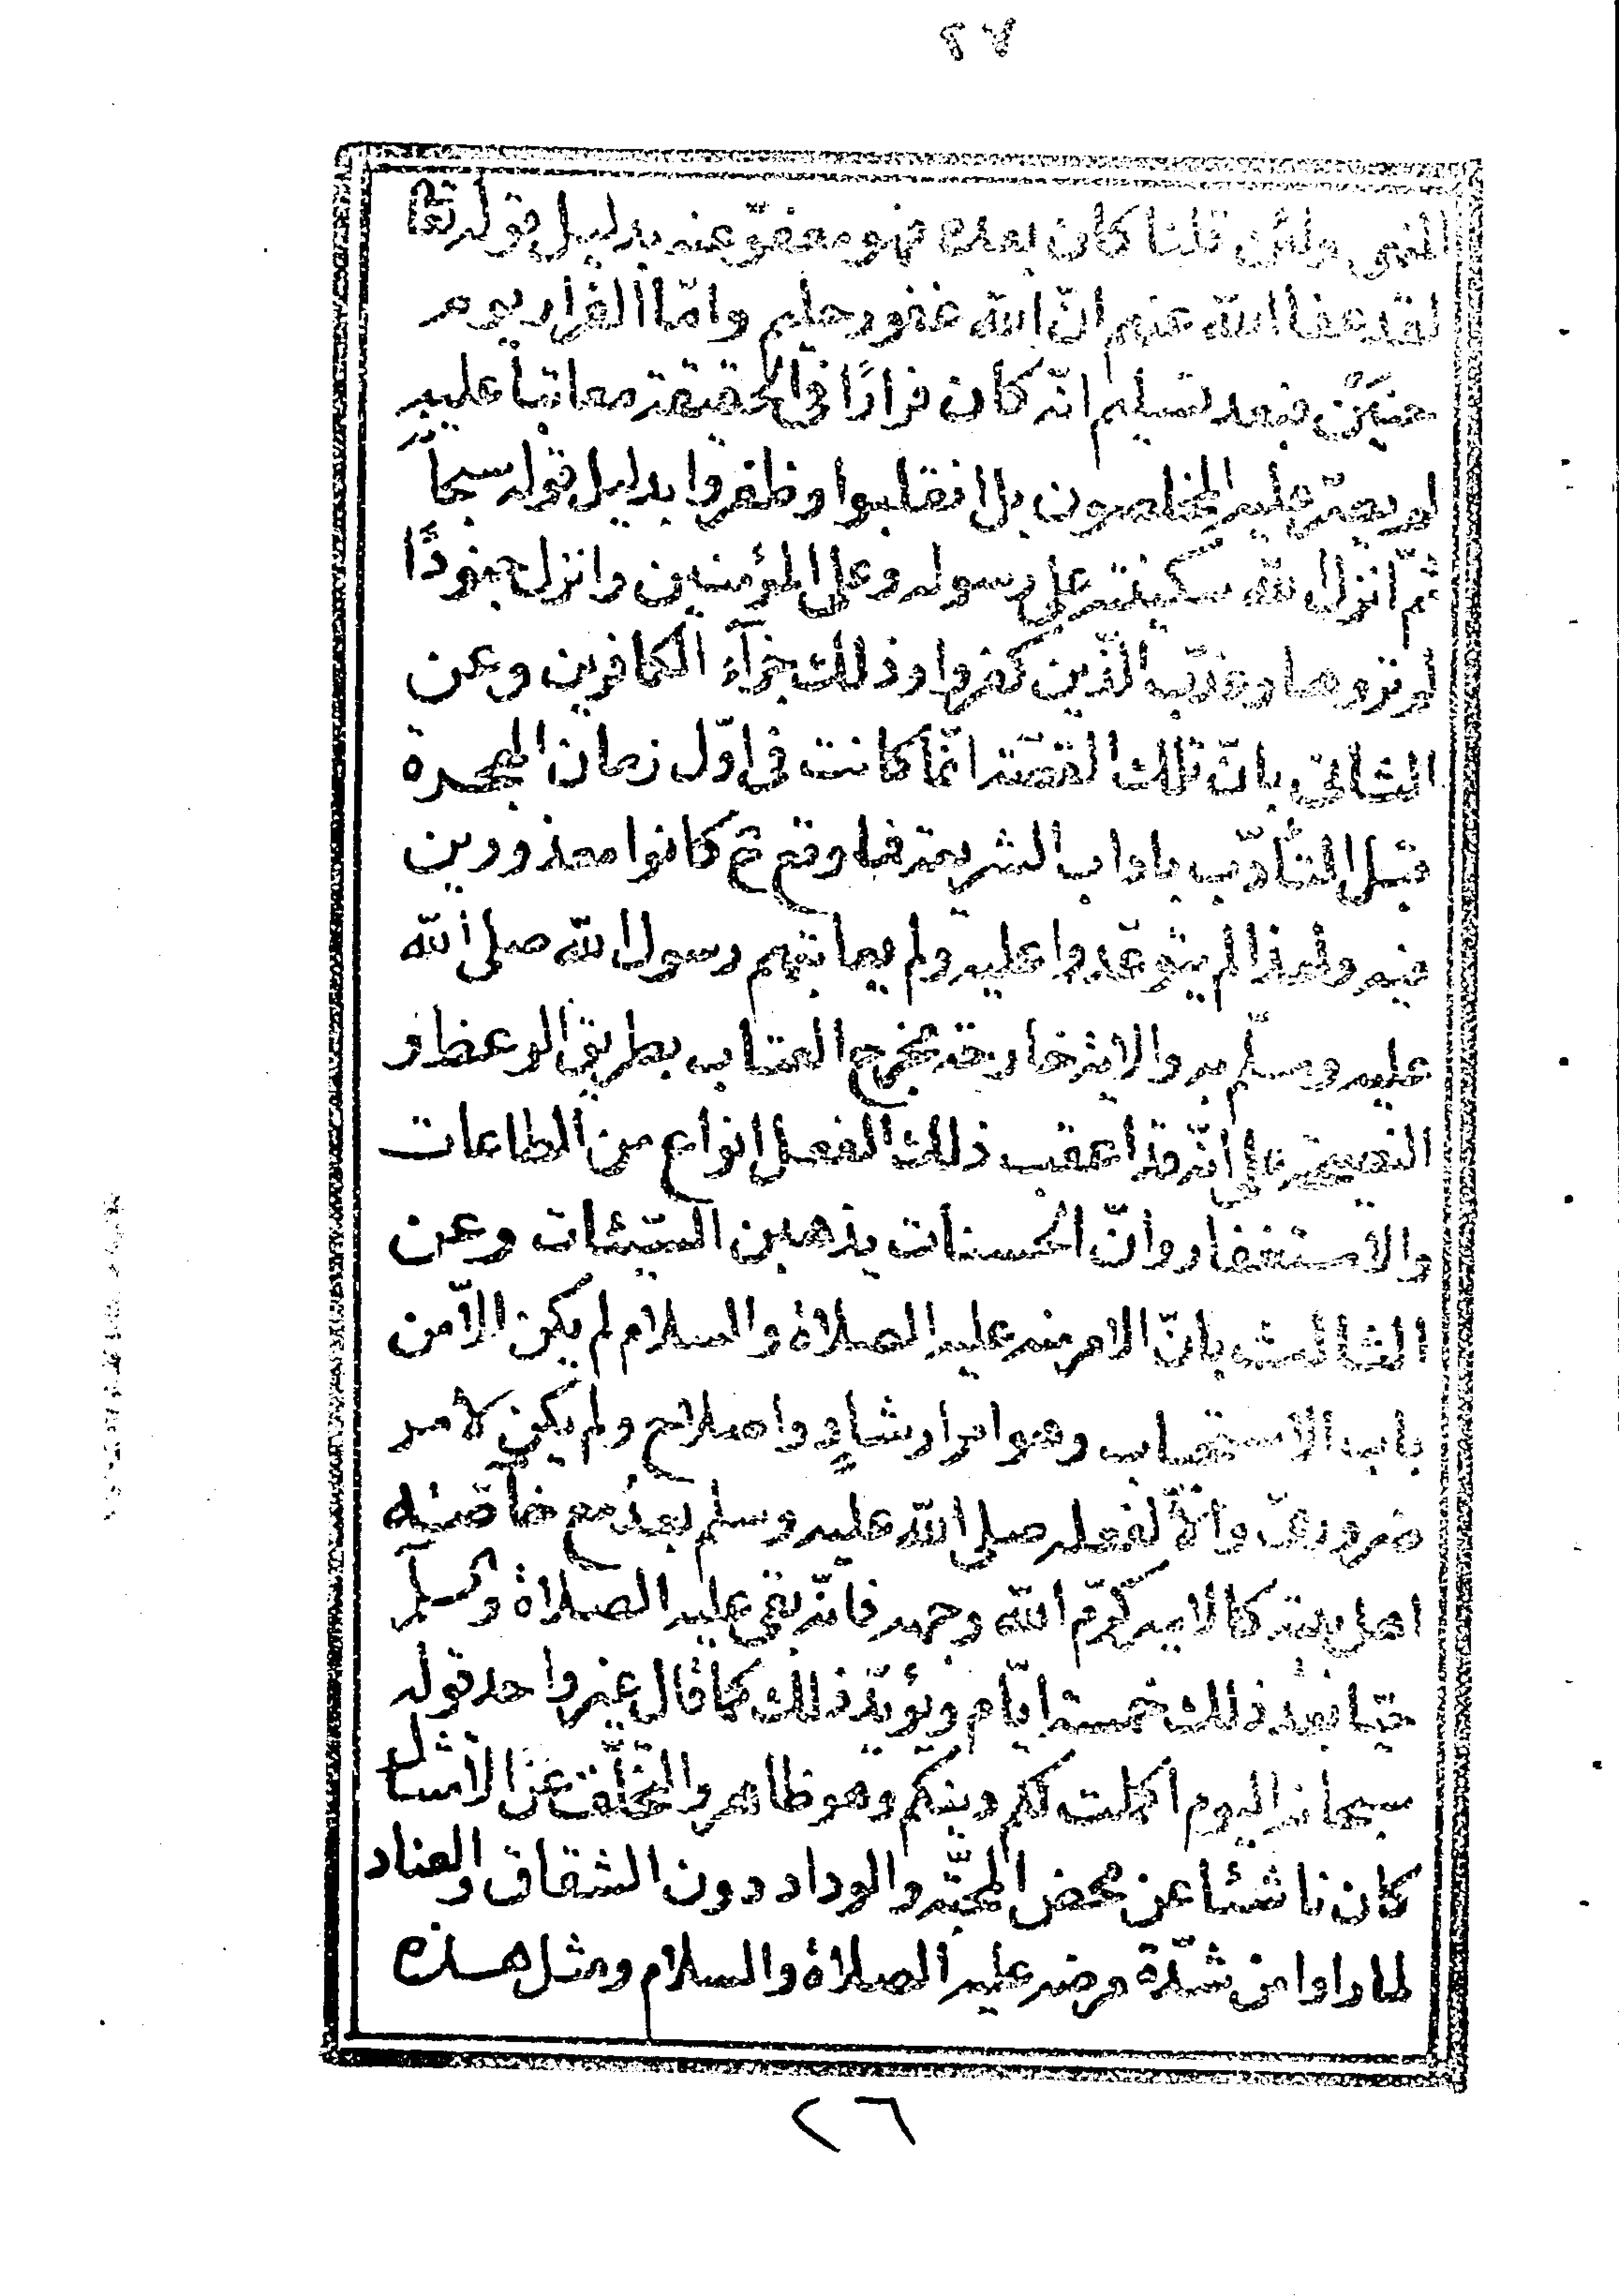 ٢٧
النهى ولئن قلنا كان بعده فهو معفوّ عنه بدليل قوله تعا
لقد عفا الله عنهم انّ الله غفور حليم وامّا الفرار يوم
حنين فبعد تسليم انّه كان فرارًا فى الحقيقة معاتبا عليه
لم يصرّ عليه المخلصون بل انقلبوا وظفروا بدليل قوله سبحا
ثمّ انزل الله سكينته على رسوله وعلى المؤمنين وانزل جنودًا
لم تروها وعذّب الّذين كفروا وذلك جزآء الكافرين وعن
الثانى بانّ تلك القصّة انّما كانت فى اوّل زمان الهجرة
قبل التأدّب باداب الشريعة فما وقع ثم كانوا معذورين
فيه ولهذا لم يتوعّدوا عليه ولم يعاتبهم رسول الله صلى الله
عليه وسلّم به والاية خارجة مخرج العتاب بطريق الوعظ و
النصيحة على انّه قد اعقب ذلك الفعل انواع من الطاعات
والاستغفار وانّ الحسنات يذهبن السّيئات وعن
الثالث بانّ الامر منه عليه الصلاة والسلام لم يكن الّا من
باب الاستصحاب وهو امر ارشادٍ واصلاح ولم يكن لامر
ضرورىّ والّا لفعله صلى الله عليه وسلم بعدُ مع خاصّته
اهل بيته كالامير كرّم الله وجهه فانّه بقى عليه الصلاة والسلم
حيّا بعد ذلك خمسة ايّام ويؤيّد ذلك كما قال غير واحد قوله
سبحانه اليوم اكملت لكم دينكم وهو ظاهر والتخلّف عن الامتثال
كان ناشئا عن محض المحبّة والوداد دون الشقاق والعناد
لما راوا من شدّة مرضه عليه الصلاة والسلام ومثل هذه
٢٦